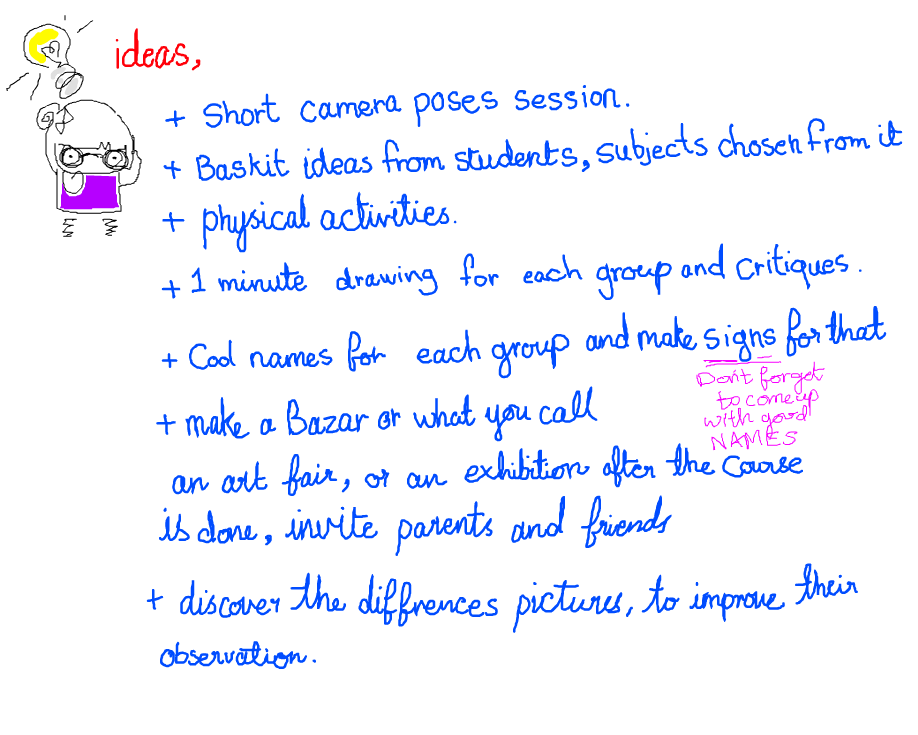 ideas,
+ Short camera poses session.
+ Baskit ideas from students, subjects chosen from it
+ physical activities.
+ 1 minute drawing for each group and critiques.
+ Cool names for each group and make signs for that
Don't forget
to come up
with good
NAMES
+ make a Bazar or what you call
an art fair, or an exhibition after the course
is done, invite parents and friends
+ discover the diffrences pictures, to improve their
observation.